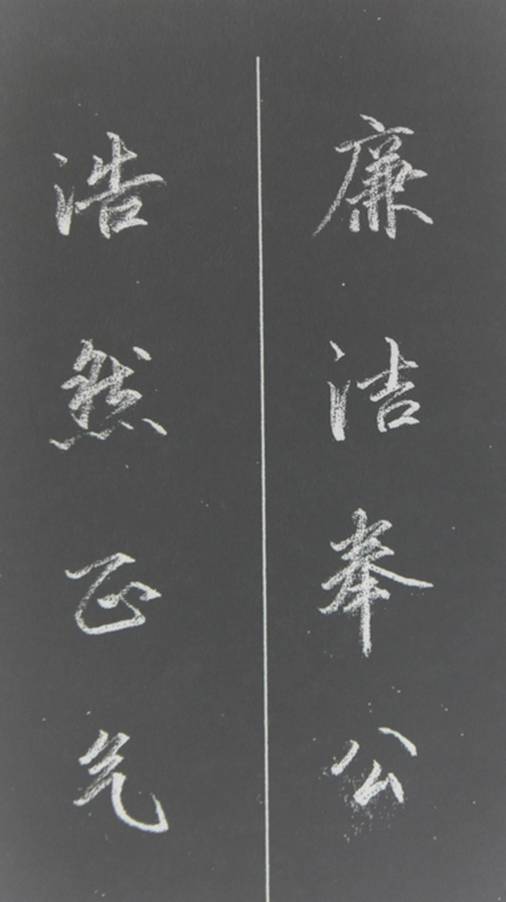 廉洁奉公
浩然正气